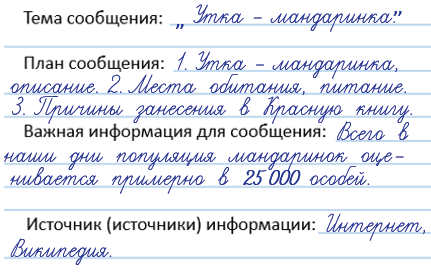 Тема сообщения: „Утка – мандаринка.”
План сообщения: 1. Утка – мандаринка,
описание. 2. Места обитания, питание.
3. Причины занесения в Красную книгу.
Важная информация для сообщения: Всего в
наши дни популяция мандаринок оце-
нивается примерно в 25 000 особей.
Источник (источники) информации: Интернет,
Википедия.